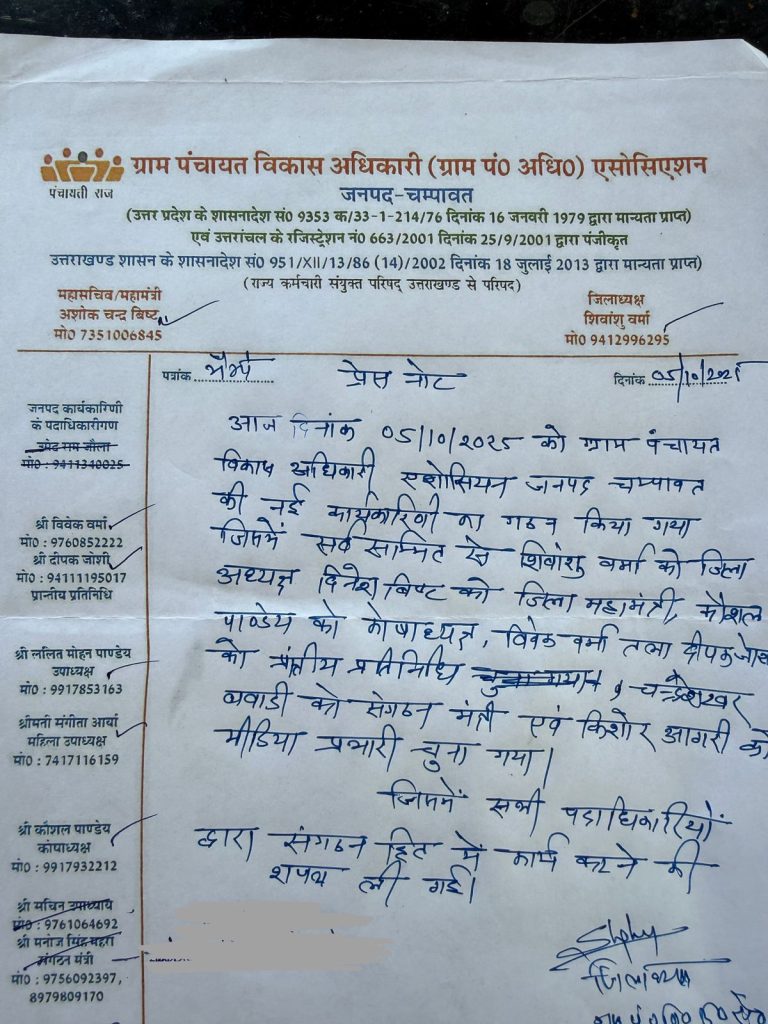 ग्राम पंचायत विकास अधिकारी (ग्राम पं0 अधि0) एसोसिएशन
पंचायती राज
जनपद-चम्पावत
(उत्तर प्रदेश के शासनादेश सं0 9353 क/33-1-214/76 दिनांक 16 जनवरी 1979 द्वारा मान्यता प्राप्त)
एवं उत्तरांचल के रजिस्ट्रेशन नं0 663/2001 दिनांक 25/9/2001 द्वारा पंजीकृत
उत्तराखण्ड शासन के शासनादेश सं0 951/XII/13/86 (14)/2002 दिनांक 18 जुलाई 2013 द्वारा मान्यता प्राप्त)
(राज्य कर्मचारी संयुक्त परिषद् उत्तराखण्ड से परिषद)
महासचिव/महामंत्री
अशोक चन्द्र बिष्ट
मो0 7351006845
जिलाध्यक्ष
शिवांशु वर्मा
मो0 9412996295
पत्रांक
प्रेस नोट
दिनांक 05/10/2025
जनपद कार्यकारिणी
के पदाधिकारीगण
उमेद राम जौला
मो0 : 9411340025
श्री विवेक वर्मा
मो0 : 9760852222
श्री दीपक जोशी
मो0 : 94111195017
प्रान्तीय प्रतिनिधि
श्री ललित मोहन पाण्डेय
उपाध्यक्ष
मो0 : 9917853163
श्रीमती संगीता आर्या
महिला उपाध्यक्ष
मो0 : 7417116159
श्री कौशल पाण्डेय
कोषाध्यक्ष
मो0 : 9917932212
श्री सचिन उपाध्याय
मो0 : 9761064692
श्री मनोज सिंह महरा
संगठन मंत्री
मो0 : 9756092397,
8979809170
आज दिनांक 05/10/2025 को ग्राम पंचायत
विकाष अधिकारी एशोसियन जनपद चम्पावत
की नई कार्यकारिणी का गठन किया गया
जिसमें सर्व साम्मित से शिवांशु वर्मा को जिला
अध्यक्ष दिनेश बिष्ट को जिला महामंत्री, कौशल
पाण्डेय को कोषाध्यक्ष, विवेक वर्मा तथा दीपक जोशी
को प्रांतीय प्रतिनिधि चुना गया, चन्द्रशेखर
को संगठन मंत्री एवं किशोर आगरी को
मीडिया प्रभारी चुना गया।
जिसमें सभी पदाधिकारियों
द्वारा संगठन हित में कार्य करने की
शपथ ली गई।
जिलाध्यक्ष